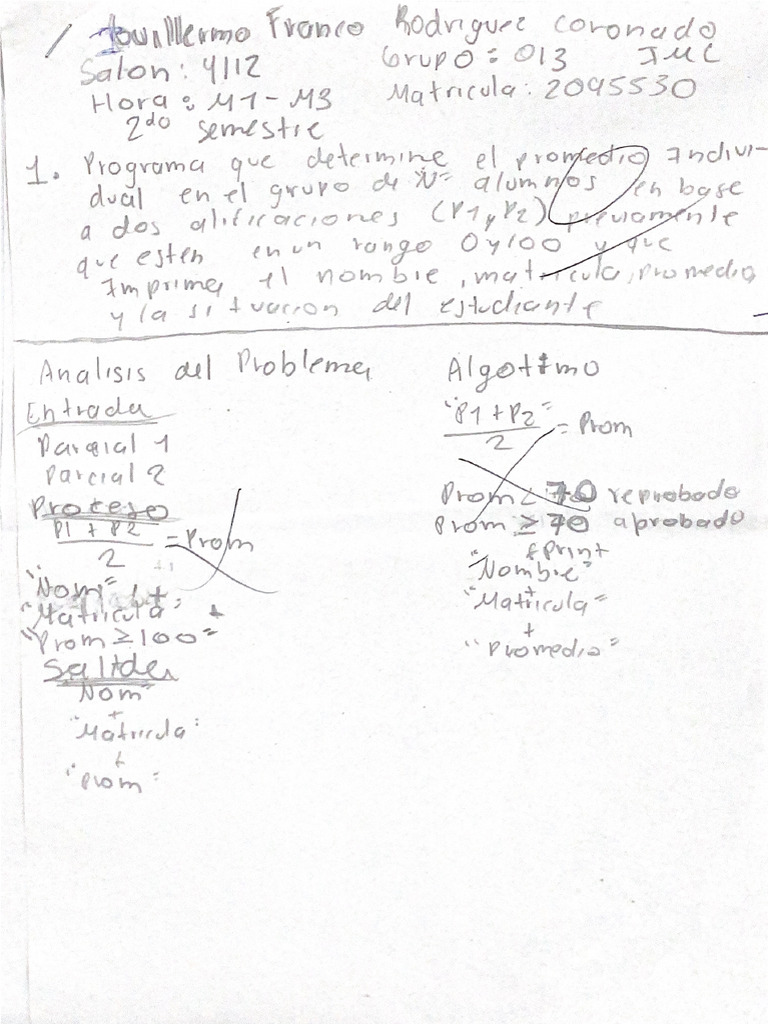 Guillermo Franco Rodriguez coronado
Salon: 4112 Grupo: 013 IMC
Hora: M1-M3 Matricula: 2095530
2do semestre
1. Programa que determine el promedio Indivi-
dual en el grupo de "N" alumnos en base
a dos alificaciones (P1 y P2) previamente
que esten en un rango 0 y 100 y que
Imprima el nombre, matricula, promedio
y la situacion del estudiante
Analisis del Problema
Entrada
Parcial 1
Parcial 2
Proceso
P1 + P2
2
= Prom
"Nom" +
"Matricula" +
"Prom ≥ 100"
Salida
"Nom"
+
"Matricula"
+
"Prom"
Algoritmo
"P1 + P2"
2
= Prom
Prom < 70 reprobado
Prom ≥ 70 aprobado
Print
"Nombre"
+
"Matricula"
+
"Promedio"